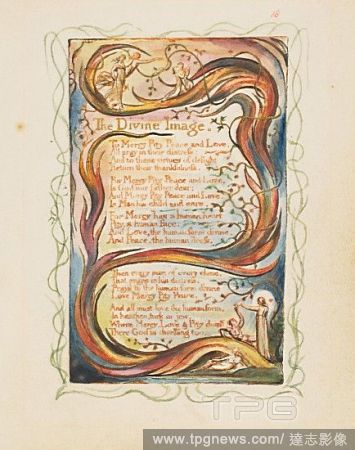 18
The Divine Image.
To Mercy Pity Peace and Love,
All pray in their distress:
And to these virtues of delight
Return their thankfulness.
For Mercy Pity Peace and Love,
Is God our father dear:
And Mercy Pity Peace and Love,
Is Man his child and care.
For Mercy has a human heart
Pity, a human face:
And Love, the human form divine,
And Peace, the human dress.
Then every man of every clime,
That prays in his distress,
Prays to the human form divine
Love Mercy Pity Peace.
And all must love the human form,
In heathen, turk or jew.
Where Mercy, Love & Pity dwell
There God is dwelling too
TPG
www.tpgnews.com/ 達志影像